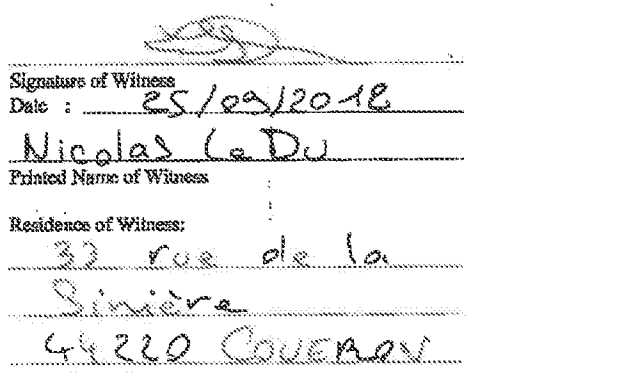 Signature of Witness
Date : 25/09/2012
Nicolas Le Du
Printed Name of Witness
Residence of Witness:
rue de la
Sinière
44220 COUERON